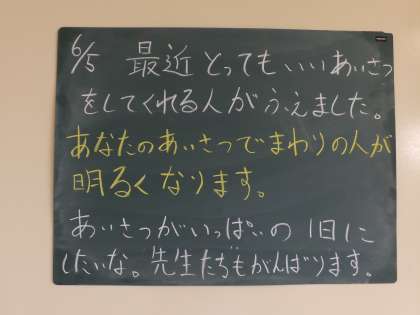 6/5 最近とってもいいあいさつ
をしてくれる人がふえました。
あなたのあいさつでまわりの人が
明るくなります。
あいさつがいっぱいの1日に
したいな。先生たちもがんばります。